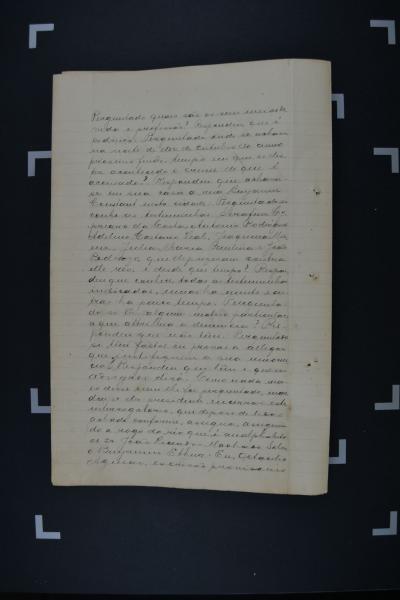 Perguntado quaes são os seus meios de
vida e profissão? Respondeu que é
pedreiro. Perguntado onde se achava
na noite de dez de Outubro do anno
proximo findo, tempo em que se diz
ter acontecido o crime de que é
accusado? Respondeu que achava-
se em sua casa á rua Benjamin
Constant nesta cidade. Perguntado se
conhece as testemunhas
da Costa, Antonio Rodrigues
Caetano Leal,
Julia Maria Paulina e João
Pedroza que depuzeram contra
elle réo, e desde que tempo? Respon-
deu que conhece todas as testemunhas
indicadas, umas ha muito e ou-
tras ha pouco tempo. Pergunta-
do se tem algum motivo particular
a que attribua a denuncia? Res-
pondeu que não tem. Perguntado
se tem factos ou provas a allegar
que justifiquem a sua innocen-
cia? Respondeu que tem e que seu
advogado dirá. Como nada ma-
is disse nem lhe foi perguntado, man-
dou o dr. presidente encerrar este
interrogatorio, que depois de lido e
achado conforme, assigna, assignan-
do a rogo do réo que é analphabeto
o sr. João
e Benjamin Eu, Octacilio
escrivão